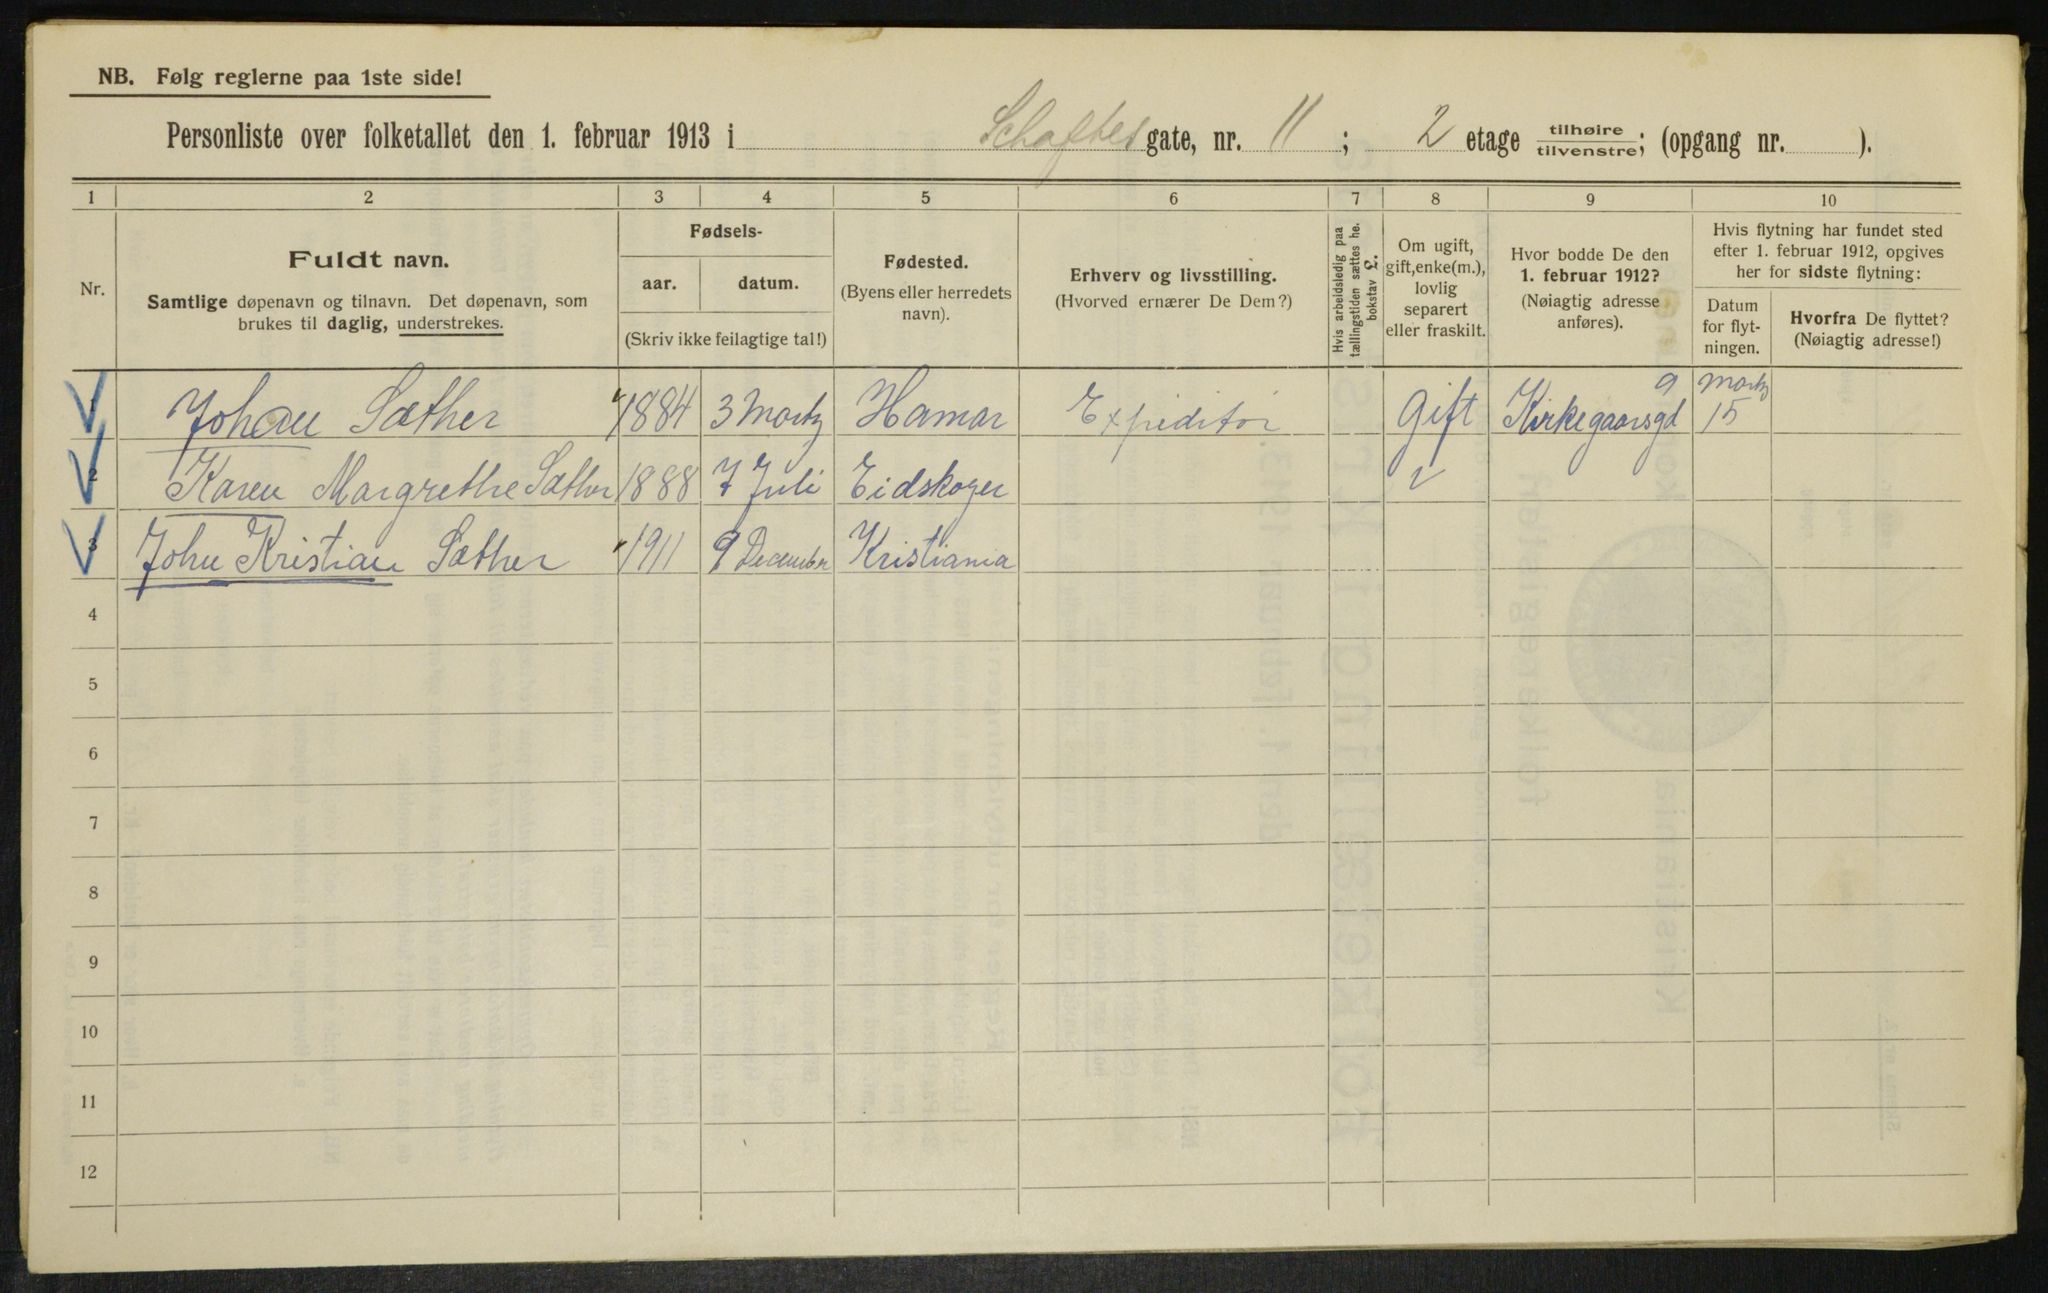 NB. Følg reglerne paa 1ste side!
Personliste over folketallet den 1. februar 1913 i Schaftes gate, nr. 11; 2 etage tilhøire tilvenstre; (opgang nr. ).
1 2 3 4 5 6 7 8 9 10
Nr.
Fuldt navn.
Samtlige døpenavn og tilnavn. Det døpenavn, som
brukes til daglig, understrekes.
Fødsels-
aar. datum.
(Skriv ikke feilagtige tal!)
Fødested.
(Byens eller herredets
navn).
Erhverv og livsstilling.
(Hvorved ernærer De Dem?)
Hvis arbeidsledig paa
tællingstiden sættes he.
bokstav L.
Om ugift,
gift, enke(m.),
lovlig
separert
eller fraskilt.
Hvor bodde De den
1. februar 1912?
(Nøiagtig adresse
anføres).
Hvis flytning har fundet sted
efter 1. februar 1912, opgives
her for sidste flytning:
Datum
for flyt-
ningen.
Hvorfra De flyttet?
(Nøiagtig adresse!)
1 Johan Sæther 1884 3 Martz Hamar Expeditør Gift Kirkegaarsgd 9 Martz 15
2 Karen Margrethe Sæther 1888 7 Juli Eidskogen
3 John Kristian Sæther 1911 9 December Kristiania
4
5
6
7
8
9
10
11
12